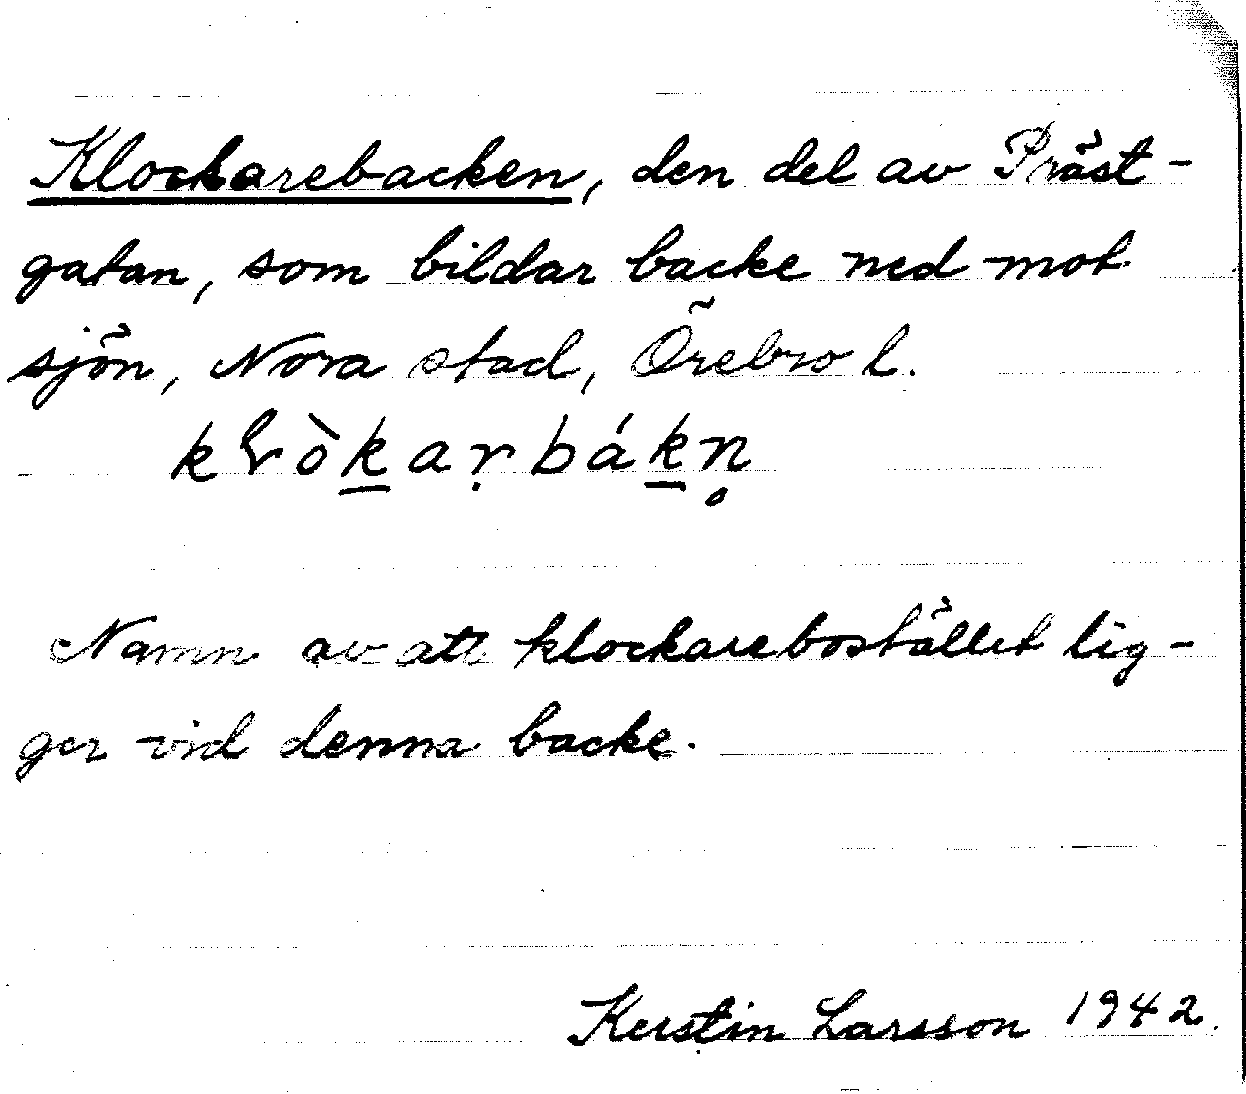 Klockarebacken, den del av Präst-
gatan, som bildar backe ned mot
sjön, Nora stad, Örebro l.
kɽòk̲aṛbák̲n̥
Namn av att klockarebostället lig-
ger vid denna backe.
Kerstin Larsson 1942.